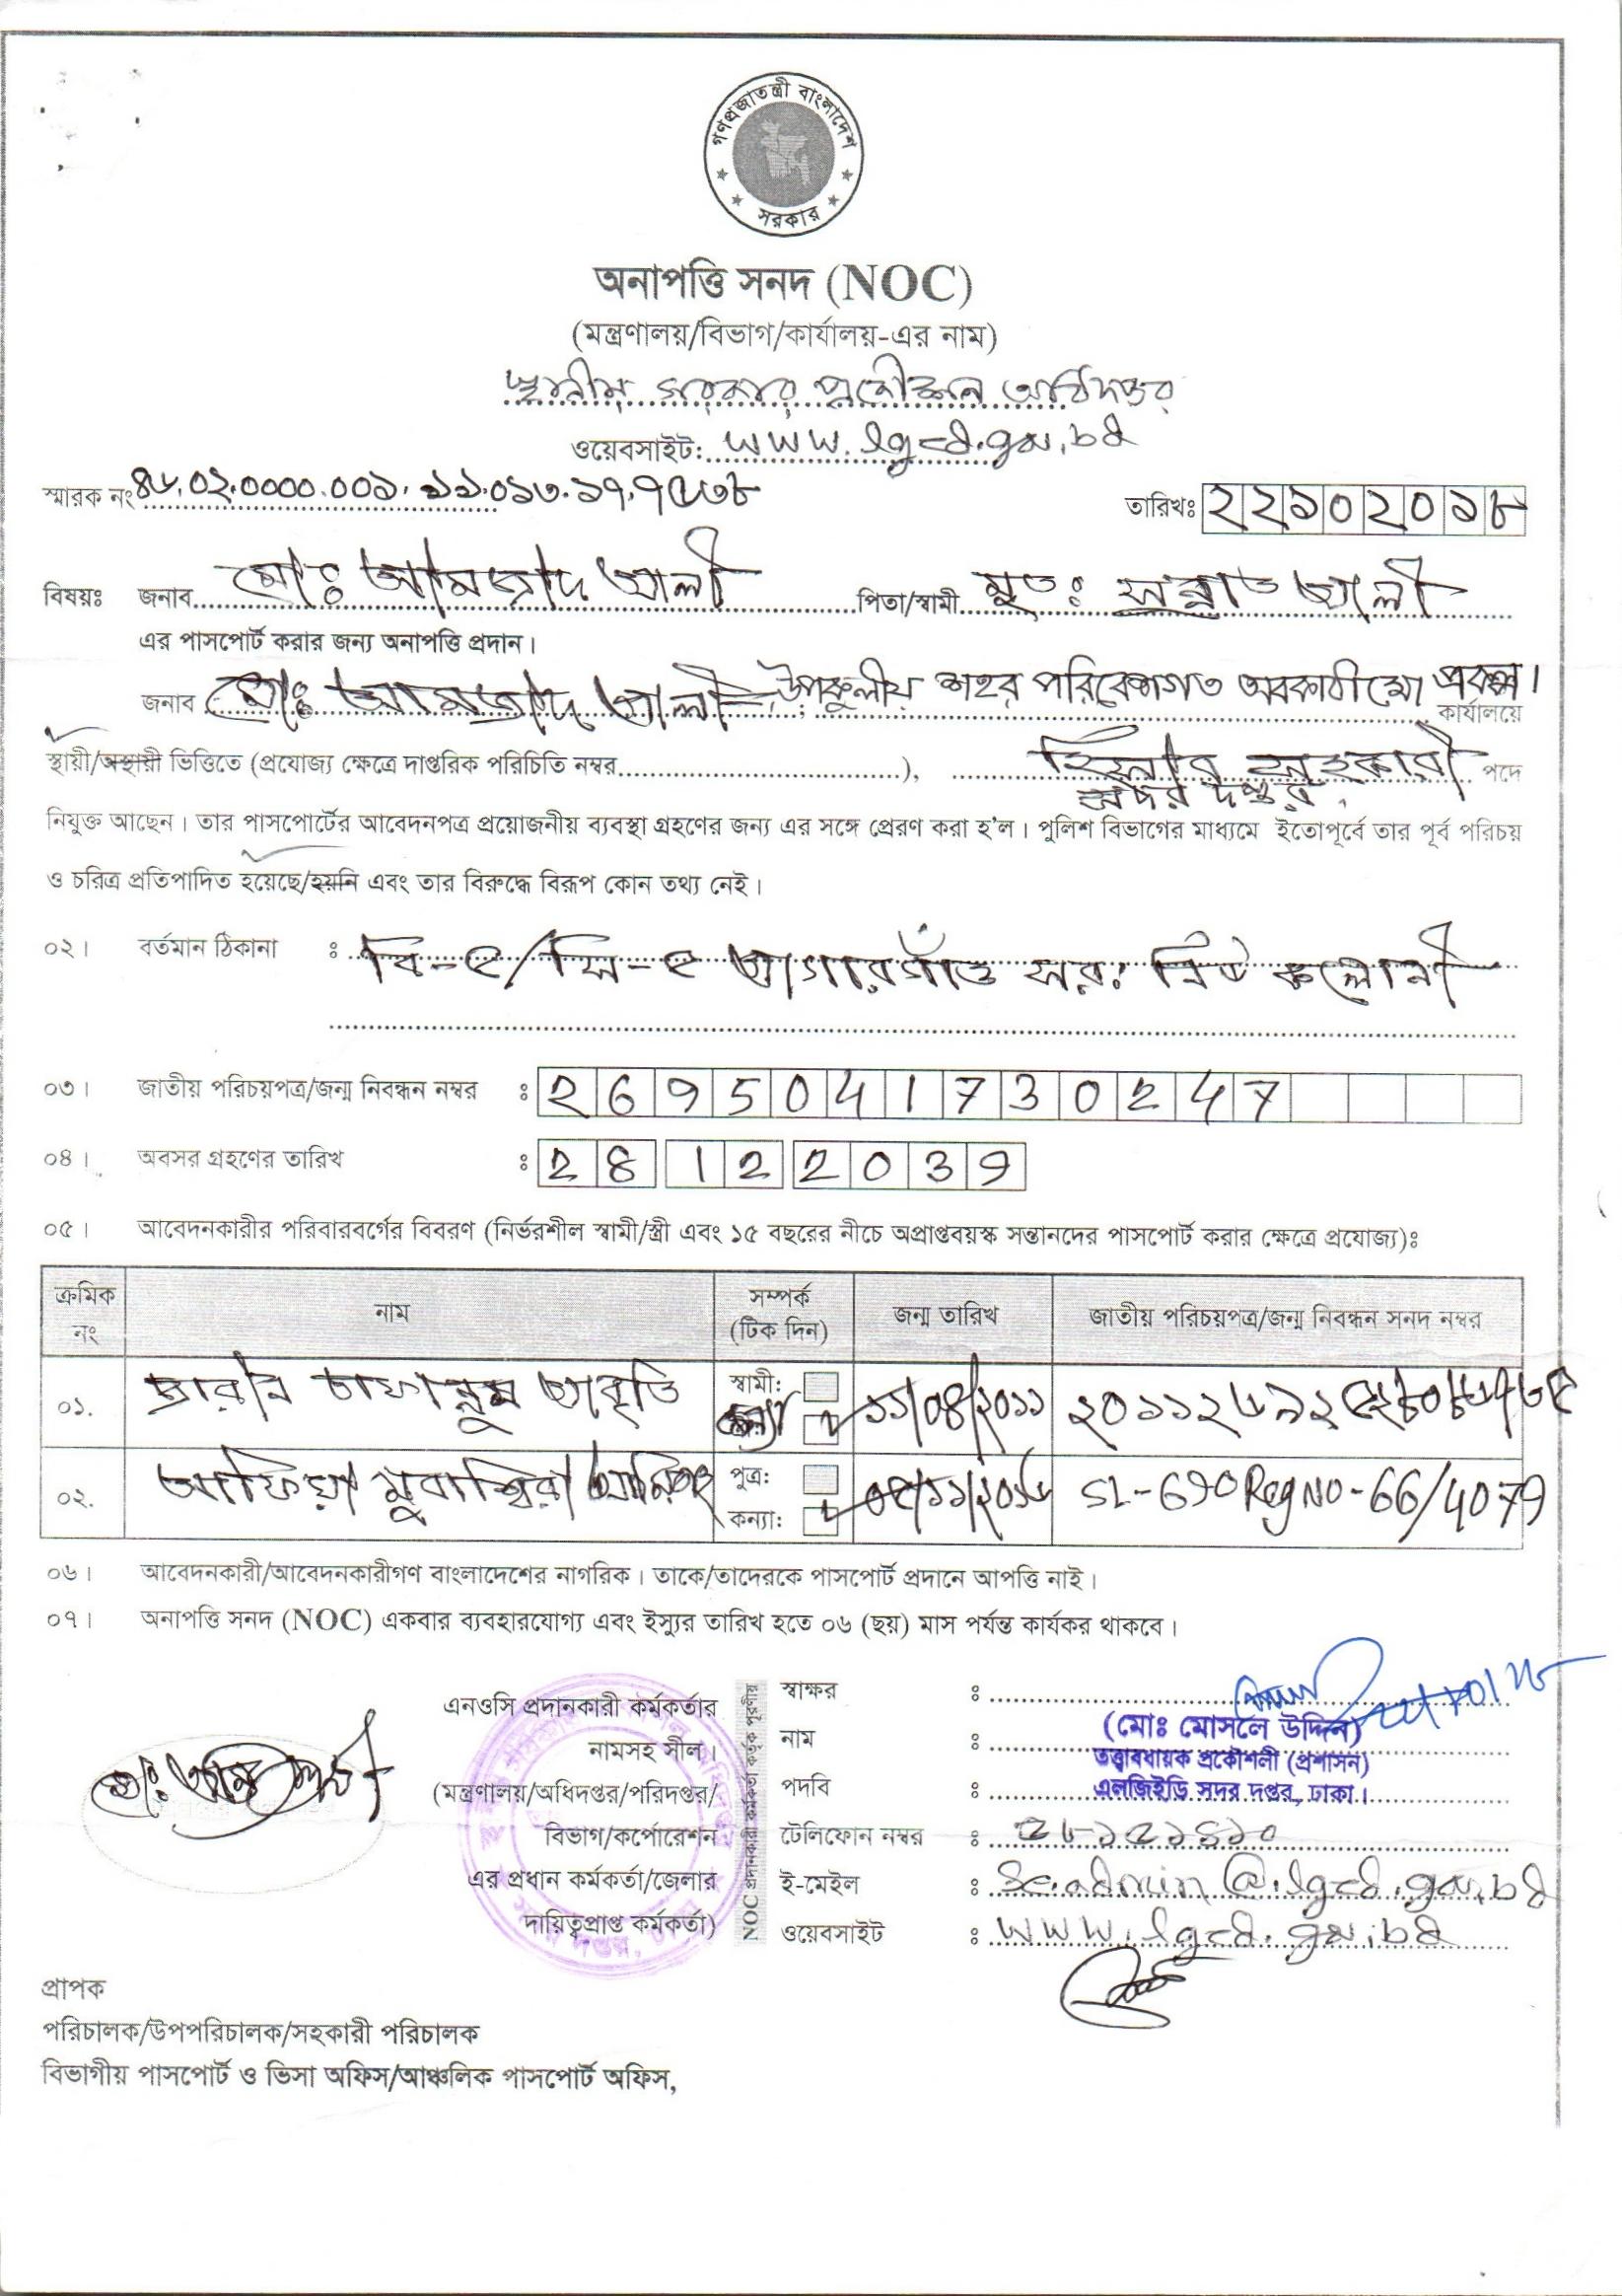 গণপ্রজাতন্ত্রী বাংলাদেশ
সরকার
অনাপত্তি সনদ (NOC)
(মন্ত্রণালয়/বিভাগ/কার্যালয়-এর নাম)
স্থানীয় সরকার প্রকৌশল অধিদপ্তর
ওয়েবসাইট: www.lged.gov.bd
স্মারক নং ৪৬.০২.০০০০.০০১.১১.০১৩.১৭.৭৫৩৮
তারিখঃ ২২১০২০১৮
বিষয়ঃ জনাব মোঃ আমজাদ আলী পিতা/স্বামী মৃতঃ আলী
এর পাসপোর্ট করার জন্য অনাপত্তি প্রদান।
জনাব মোঃ আমজাদ আলী, উপকূলীয় শহর পরিবেশগত অবকাঠামো প্রকল্প। কার্যালয়ে
স্থায়ী/অস্থায়ী ভিত্তিতে (প্রযোজ্য ক্ষেত্রে দাপ্তরিক পরিচিতি নম্বর), হিসাব সহকারী পদে
সদর দপ্তর,
নিযুক্ত আছেন। তার পাসপোর্টের আবেদনপত্র প্রয়োজনীয় ব্যবস্থা গ্রহণের জন্য এর সঙ্গে প্রেরণ করা হ'ল। পুলিশ বিভাগের মাধ্যমে ইতোপূর্বে তার পূর্ব পরিচয়
ও চরিত্র প্রতিপাদিত হয়েছে/হয়নি এবং তার বিরুদ্ধে বিরূপ কোন তথ্য নেই।
০২। বর্তমান ঠিকানা : বি-৫/সি-৫ আগারগাঁও সরঃ নিউ কলোনী
০৩। জাতীয় পরিচয়পত্র/জন্ম নিবন্ধন নম্বর : 2695041730247
০৪। অবসর গ্রহণের তারিখ : 28 12 2039
০৫। আবেদনকারীর পরিবারবর্গের বিবরণ (নির্ভরশীল স্বামী/স্ত্রী এবং ১৫ বছরের নীচে অপ্রাপ্তবয়স্ক সন্তানদের পাসপোর্ট করার ক্ষেত্রে প্রযোজ্য)ঃ
ক্রমিক নং নাম সম্পর্ক (টিক দিন) জন্ম তারিখ জাতীয় পরিচয়পত্র/জন্ম নিবন্ধন সনদ নম্বর
০১. তাবাসসুম আবৃতি স্বামী: ১১/০৪/২০১১
০২. আফিয়া মুবাশ্বিরা পুত্র: কন্যা: ০৫/১১/২০১৬ SL-690 Reg NO-66/4079
০৬। আবেদনকারী/আবেদনকারীগণ বাংলাদেশের নাগরিক। তাকে/তাদেরকে পাসপোর্ট প্রদানে আপত্তি নাই।
০৭। অনাপত্তি সনদ (NOC) একবার ব্যবহারযোগ্য এবং ইস্যুর তারিখ হতে ০৬ (ছয়) মাস পর্যন্ত কার্যকর থাকবে।
এনওসি প্রদানকারী কর্মকর্তার
নামসহ সীল।
(মন্ত্রণালয়/অধিদপ্তর/পরিদপ্তর/
বিভাগ/কর্পোরেশন
এর প্রধান কর্মকর্তা/জেলার
দায়িত্বপ্রাপ্ত কর্মকর্তা)
NOC প্রদানকারী কর্মকর্তা কর্তৃক পূরণীয়
স্বাক্ষর :
নাম : (মোঃ মোসলে উদ্দিন)
তত্ত্বাবধায়ক প্রকৌশলী (প্রশাসন)
পদবি : এলজিইডি সদর দপ্তর, ঢাকা।
টেলিফোন নম্বর :
ই-মেইল : se.admin@lged.gov.bd
ওয়েবসাইট : www.lged.gov.bd
প্রাপক
পরিচালক/উপপরিচালক/সহকারী পরিচালক
বিভাগীয় পাসপোর্ট ও ভিসা অফিস/আঞ্চলিক পাসপোর্ট অফিস,